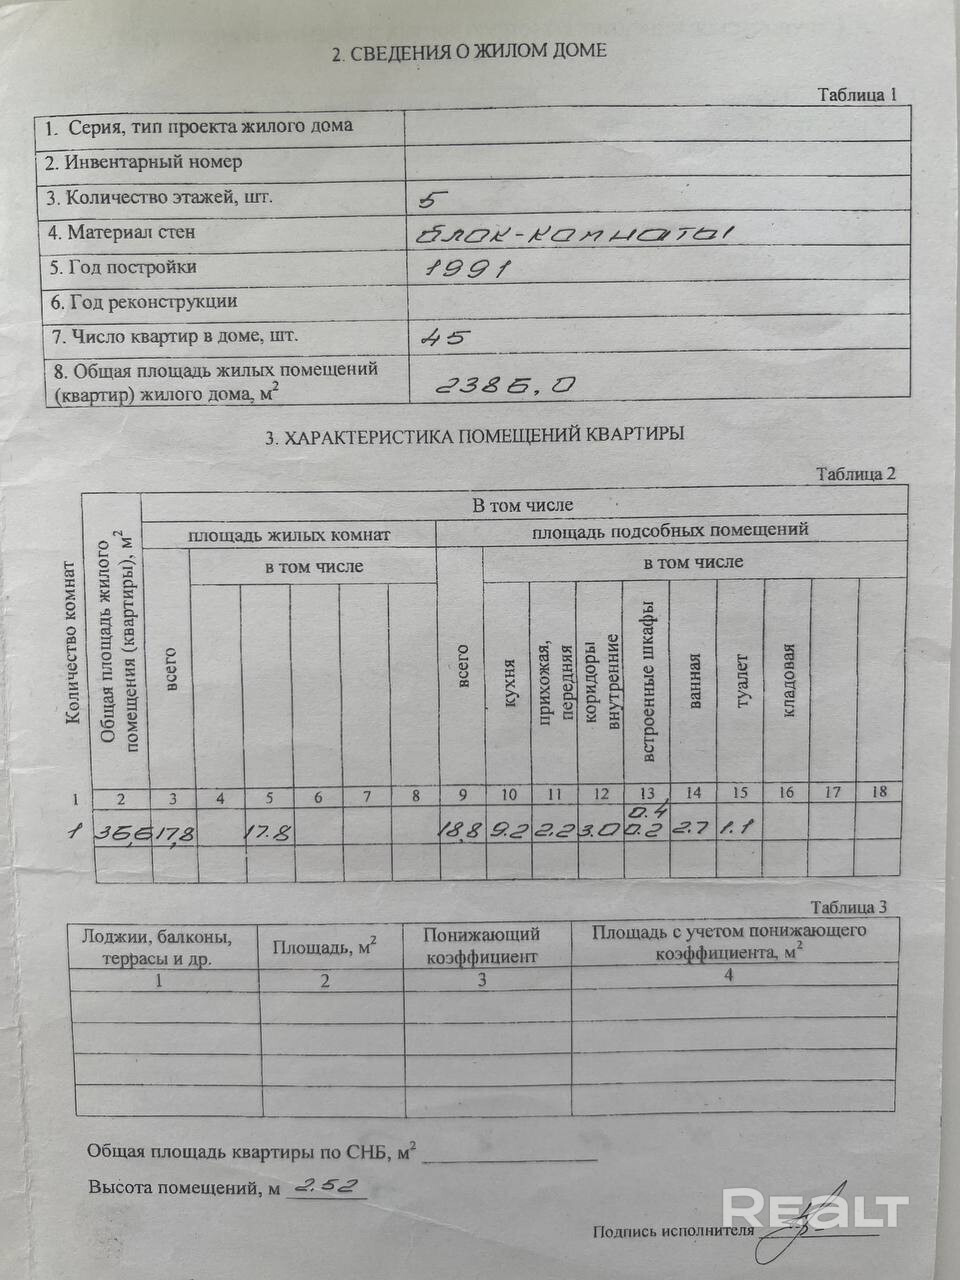 2. СВЕДЕНИЯ О ЖИЛОМ ДОМЕ
Таблица 1
1. Серия, тип проекта жилого дома
2. Инвентарный номер
3. Количество этажей, шт. 5
4. Материал стен блок-комнаты
5. Год постройки 1991
6. Год реконструкции
7. Число квартир в доме, шт. 45
8. Общая площадь жилых помещений
(квартир) жилого дома, м² 2386,0
3. ХАРАКТЕРИСТИКА ПОМЕЩЕНИЙ КВАРТИРЫ
Таблица 2
Количество комнат
Общая площадь жилого
помещения (квартиры), м²
В том числе
площадь жилых комнат
площадь подсобных помещений
всего
в том числе
всего
в том числе
кухня
прихожая,
передняя
коридоры
внутренние
встроенные шкафы
ванная
туалет
кладовая
1 2 3 4 5 6 7 8 9 10 11 12 13 14 15 16 17 18
0.4
1 36,6 17,8 17.8 18,8 9.2 2.2 3.0 0.2 2.7 1.1
Таблица 3
Лоджии, балконы,
террасы и др.
Площадь, м²
Понижающий
коэффициент
Площадь с учетом понижающего
коэффициента, м²
1 2 3 4
Общая площадь квартиры по СНБ, м²
Высота помещений, м 2.52
REALT
Подпись исполнителя